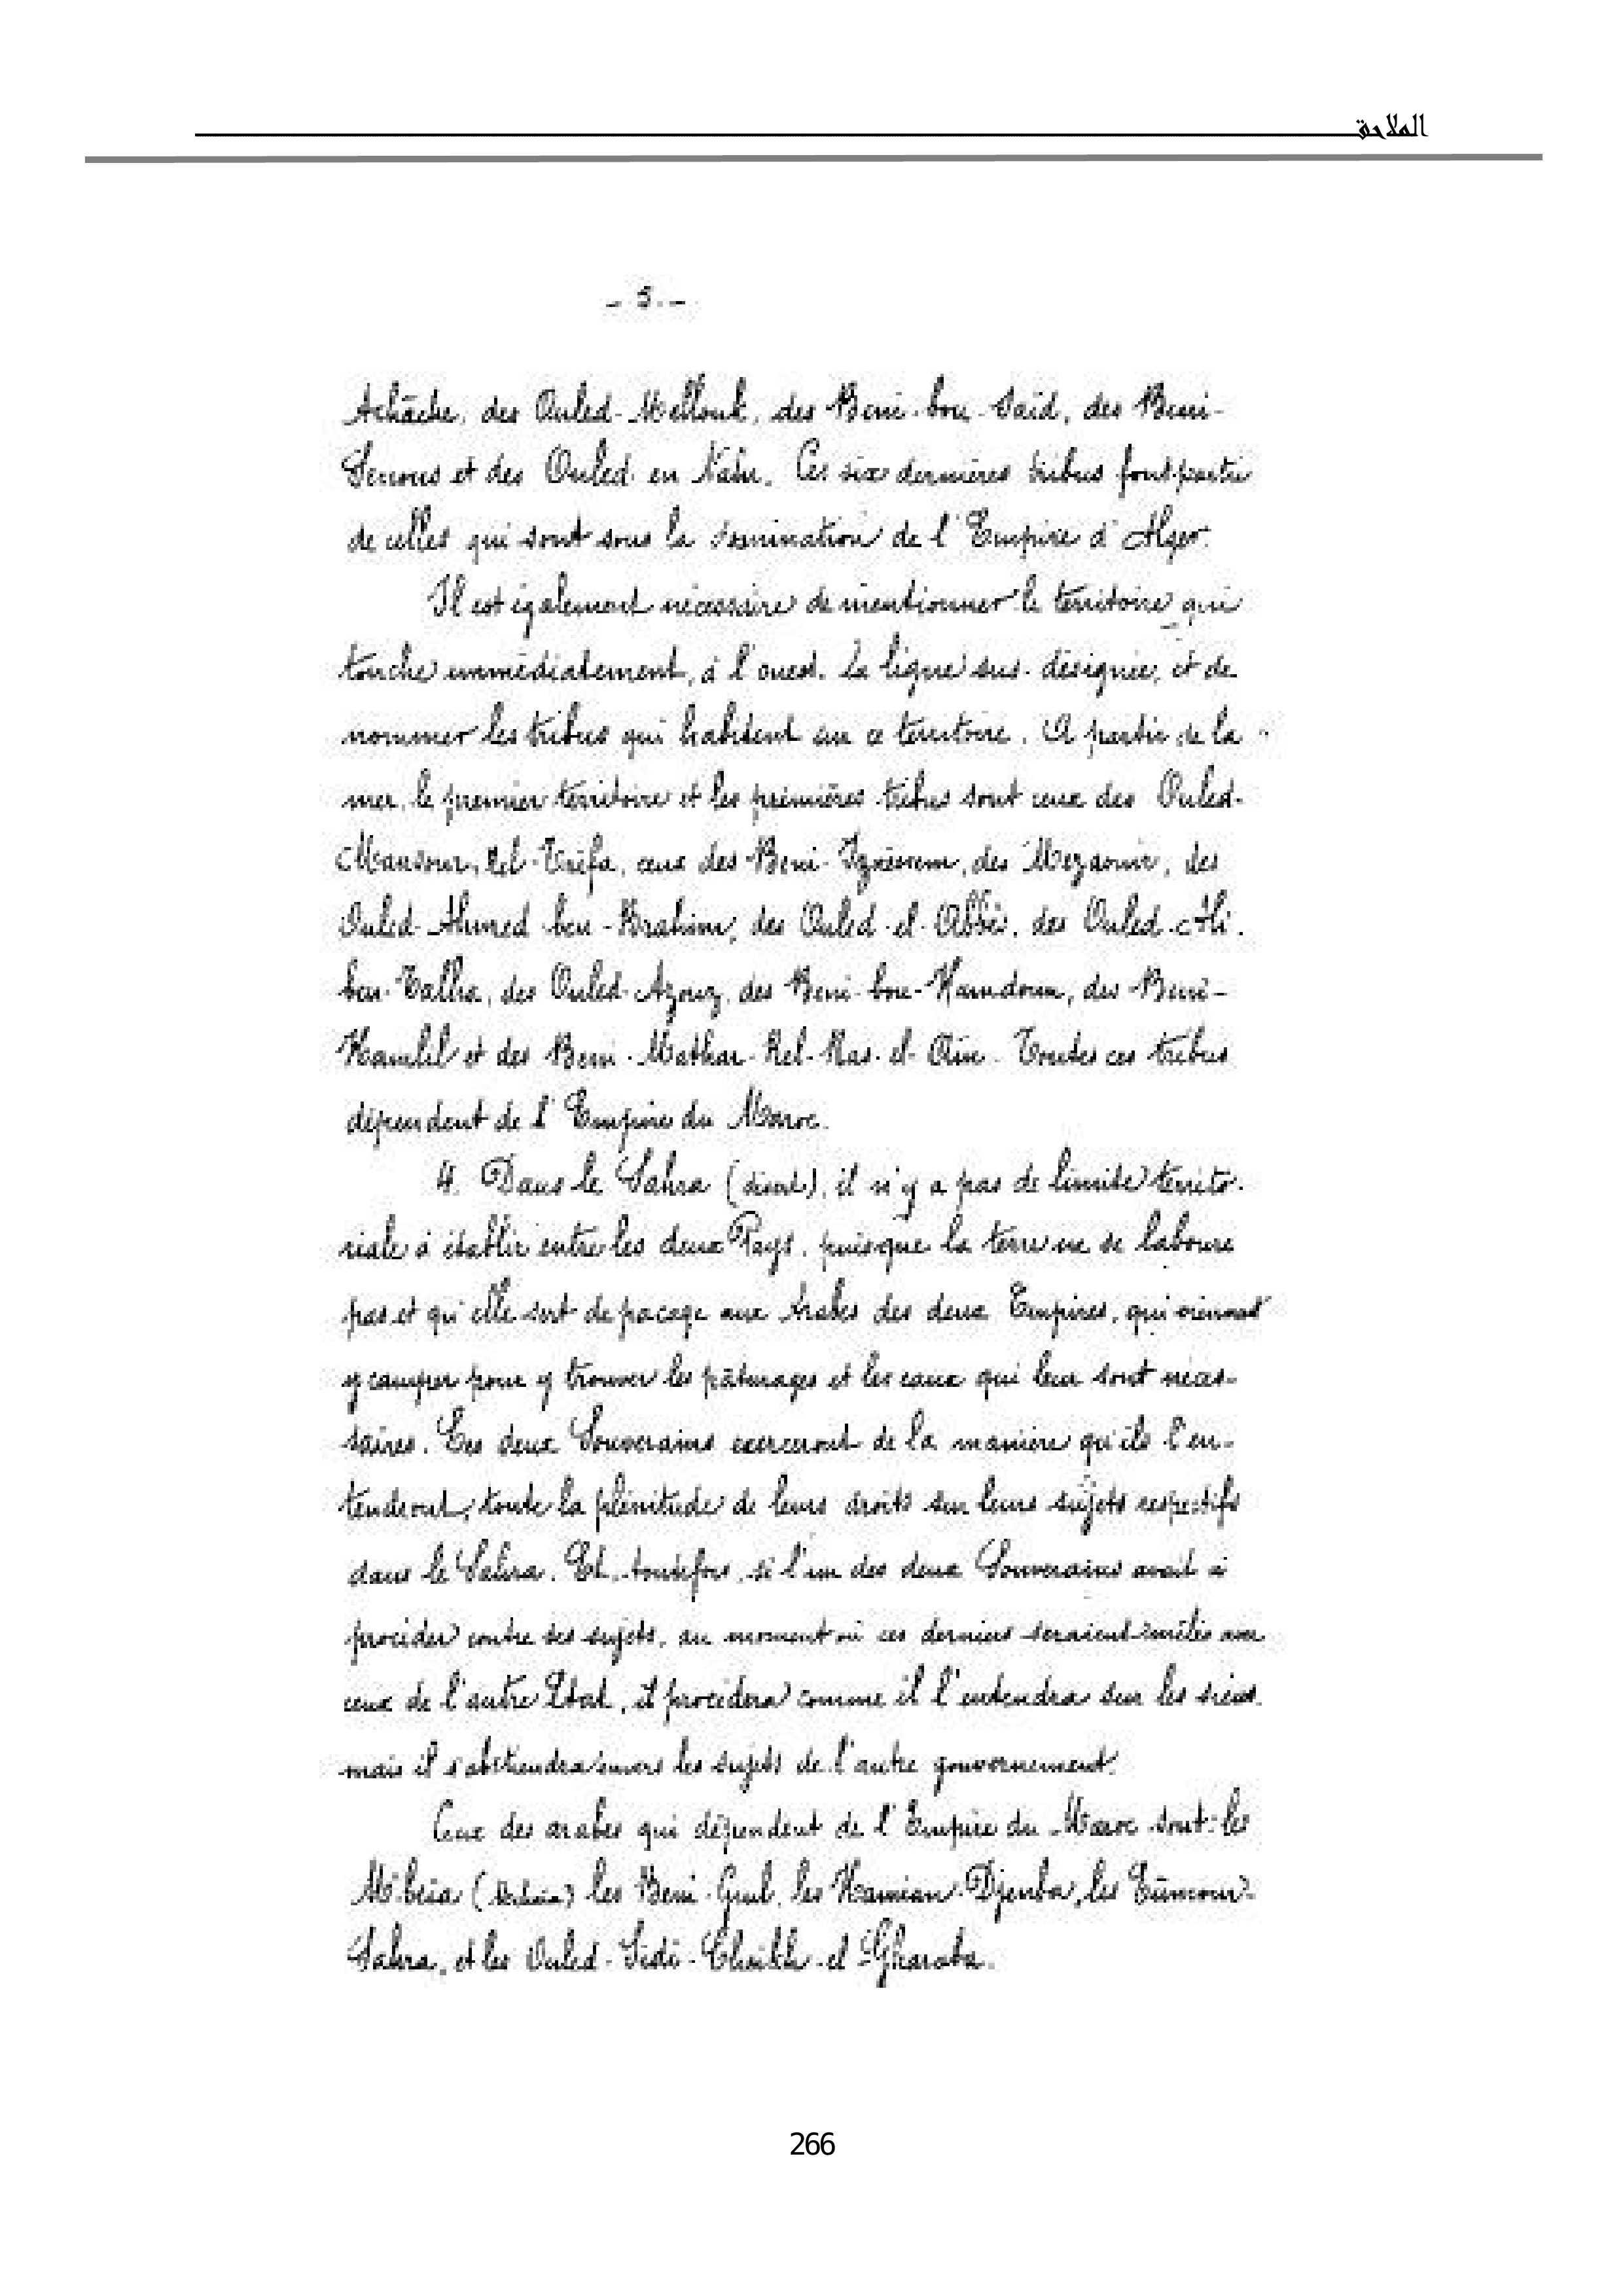 الملاحق
- 5. -
Achâche, des Ouled-Mellouk, des Beni-bou-Saïd, des Beni-
Senous et des Ouled-en-Nahr. Ces six dernières tribus font partie
de celles qui sont sous la domination de l'Empire d'Alger.
Il est également nécessaire de mentionner le territoire qui
touche immédiatement, à l'ouest. La ligne sus-désignée, et de
nommer les tribus qui habitent sur ce territoire. A partir de la
mer, le premier territoire et les premières tribus sont ceux des Ouled-
Mansour, Rel-Trifa, ceux des Beni-Iznéssem, des Mezaouir, des
Ouled-Ahmed-ben-Brahim, des Ouled-el-Abbès, des Ouled-Ali-
ben-Talha, des Ouled-Azouz, des Beni-bou-Hamdoun, des Beni-
Hamlil et des Beni-Mathar-Rel-Ras-el-Aïn. Toutes ces tribus
dépendent de l'Empire du Maroc.
4. Dans le Sahra (désert), il n'y a pas de limite territo-
riale à établir entre les deux Pays, puisque la terre ne se laboure
pas et qu'elle sert de pacage aux Arabes des deux Empires, qui viennent
y camper pour y trouver les pâturages et les eaux qui leur sont néces-
saires. Les deux Souverains exerceront de la manière qu'ils l'en-
tendront, toute la plénitude de leurs droits sur leurs sujets respectifs
dans le Sahra. Et, toutefois, si l'un des deux Souverains avait à
procéder contre ses sujets, au moment où ces derniers seraient mêlés avec
ceux de l'autre Etat, il procédera comme il l'entendra sur les siens.
mais il s'abstiendra envers les sujets de l'autre gouvernement.
Ceux des arabes qui dépendent de l'Empire du Maroc sont: les
M'beïa les Beni-Guil, les Hamian-Djenba, les Eûmour-
Sahra, et les Ouled-Sidi-Cheikh-el-Gharaba.
266